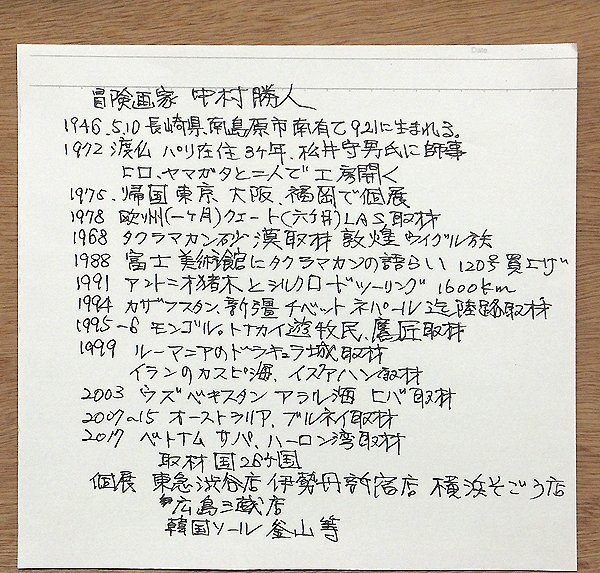 Date
冒険画家 中村勝人
1946.5.10 長崎県南島原市南有乙921に生まれる。
1972 渡仏 パリ在住3ヶ年、松井守男氏に師事
ヒロ、ヤマガタと二人で工房開く
1975. 帰国 東京 大阪、福岡で個展
1978 欧州(一ヶ月)クェート(六ヶ月)LAS取材
1968 タクラマカン砂漠取材 敦煌 ウイグル族
1988 富士美術館にタクラマカンの語らい 120号買上げ
1991 アントニオ猪木とシルクロードツーリング 1600km
1994 カザフスタン、新彊 チベット ネパール迄陸路取材
1995-6 モンゴル。トナカイ遊牧民、鷹匠取材
1999 ルーマニアのドラキュラ城取材
イランのカスピ海、イスファハン取材
2003 ウズベキスタン アラル海 ヒバ取材
2007~15 オーストラリア、ブルネイ取材
2017 ベトナム サパ、ハーロン湾取材
取材国28ヶ国
個展 東急渋谷店 伊勢丹新宿店 横浜そごう店
広島三越店
韓国ソール 釜山等